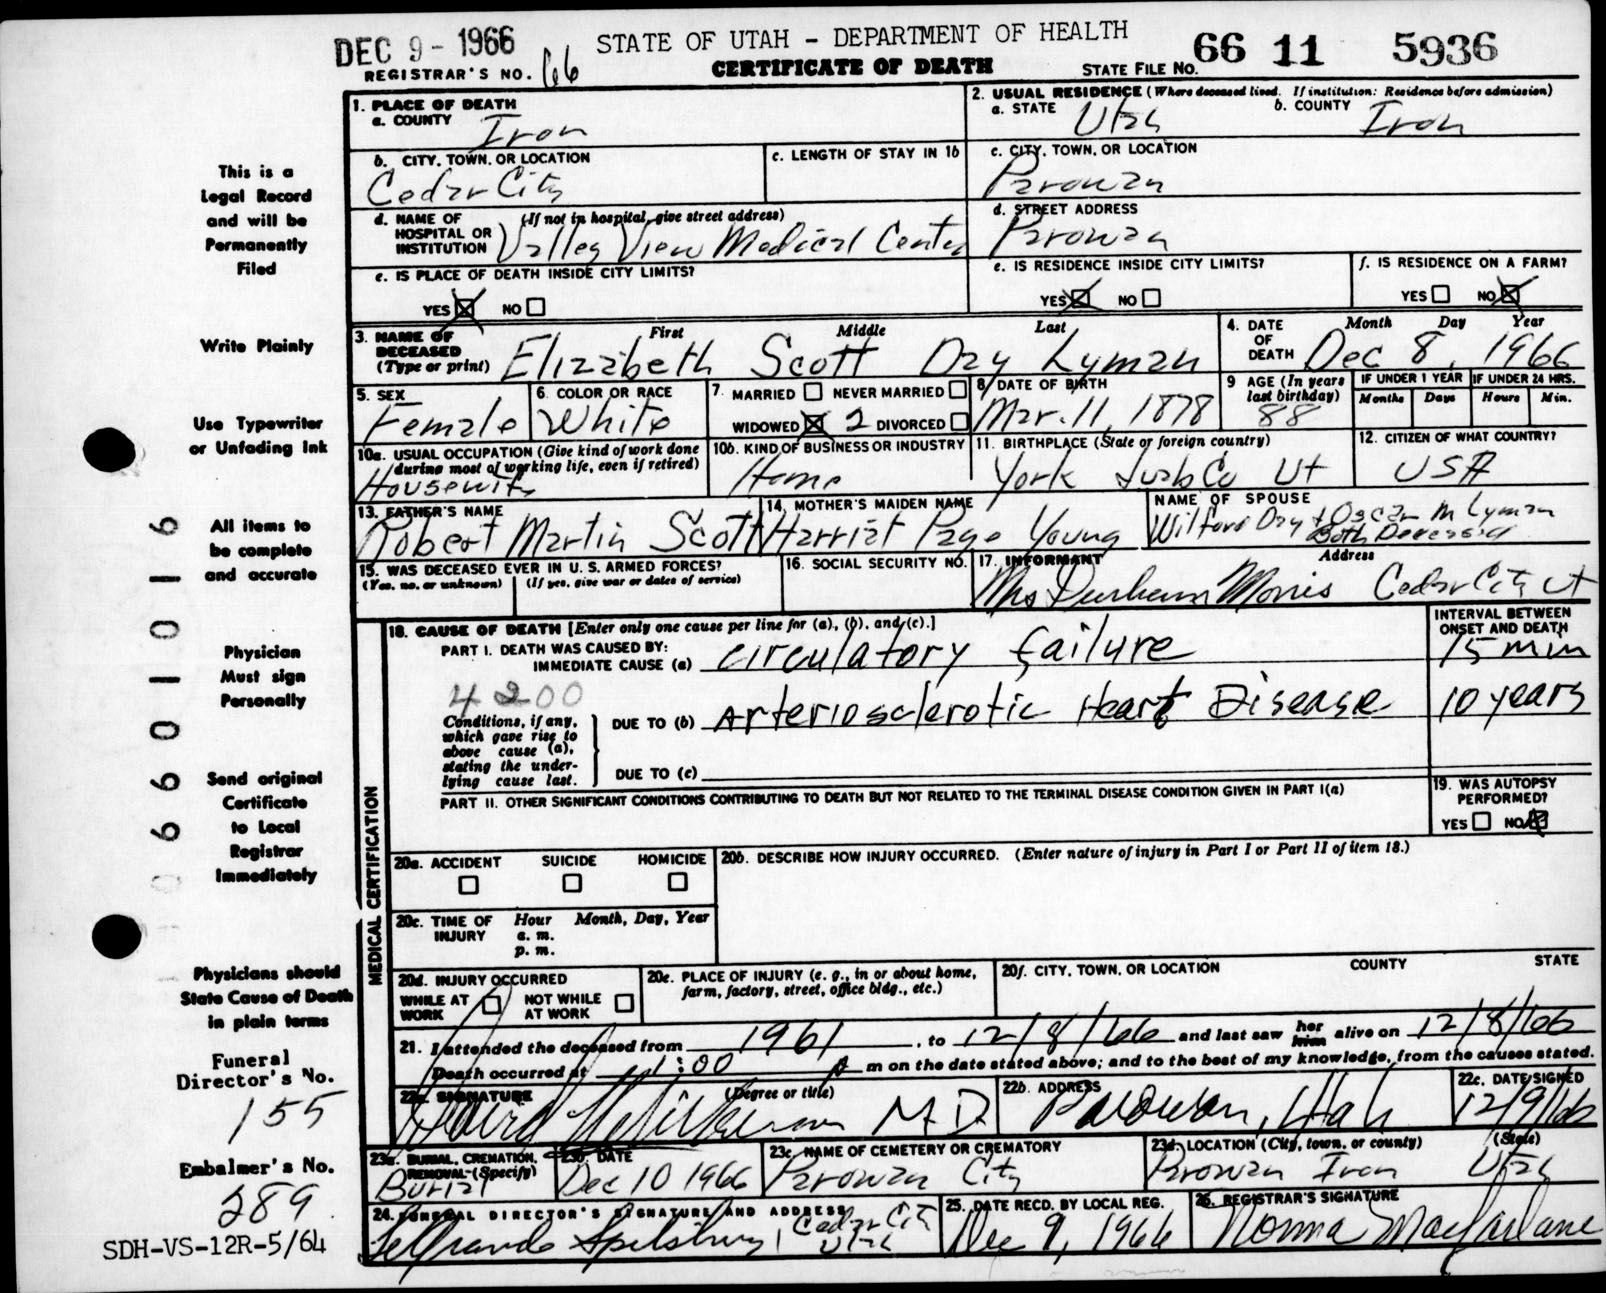 DEC 9 - 1966
STATE OF UTAH - DEPARTMENT OF HEALTH
66 11 5936
REGISTRAR'S NO. 66
CERTIFICATE OF DEATH
STATE FILE NO.
1. PLACE OF DEATH
a. COUNTY Iron
2. USUAL RESIDENCE (Where deceased lived. If institution: Residence before admission)
a. STATE Utah b. COUNTY Iron
b. CITY, TOWN, OR LOCATION
Cedar City
c. LENGTH OF STAY IN 1b
c. CITY, TOWN, OR LOCATION
Parowan
d. NAME OF HOSPITAL OR INSTITUTION (If not in hospital, give street address)
Valley View Medical Center
d. STREET ADDRESS
Parowan
e. IS PLACE OF DEATH INSIDE CITY LIMITS?
YES NO
e. IS RESIDENCE INSIDE CITY LIMITS?
YES NO
f. IS RESIDENCE ON A FARM?
YES NO
3. NAME OF DECEASED (Type or print)
First Middle Last
Elizabeth Scott Day Lyman
4. DATE OF DEATH
Month Day Year
Dec 8, 1966
5. SEX
Female
6. COLOR OR RACE
White
7. MARRIED NEVER MARRIED
WIDOWED 2 DIVORCED
8. DATE OF BIRTH
Mar. 11, 1878
9 AGE (In years last birthday)
88
IF UNDER 1 YEAR
Months Days
IF UNDER 24 HRS.
Hours Min.
10a. USUAL OCCUPATION (Give kind of work done during most of working life, even if retired)
Housewife
10b. KIND OF BUSINESS OR INDUSTRY
Home
11. BIRTHPLACE (State or foreign country)
York Juab Co Ut
12. CITIZEN OF WHAT COUNTRY?
USA
13. FATHER'S NAME
Robert Martin Scott
14. MOTHER'S MAIDEN NAME
Harriet Page Young
NAME OF SPOUSE
Wilford Day + Oscar M Lyman
Both Deceased
15. WAS DECEASED EVER IN U. S. ARMED FORCES?
(Yes, no, or unknown) (If yes, give war or dates of service)
16. SOCIAL SECURITY NO.
17. INFORMANT Address
Mrs Durham Morris Cedar City Ut
18. CAUSE OF DEATH [Enter only one cause per line for (a), (b), and (c).]
INTERVAL BETWEEN ONSET AND DEATH
PART I. DEATH WAS CAUSED BY:
IMMEDIATE CAUSE (a) circulatory failure 15 min
4200
Conditions, if any, which gave rise to above cause (a), stating the underlying cause last.
DUE TO (b) Arteriosclerotic Heart Disease 10 years
DUE TO (c)
PART II. OTHER SIGNIFICANT CONDITIONS CONTRIBUTING TO DEATH BUT NOT RELATED TO THE TERMINAL DISEASE CONDITION GIVEN IN PART I(a)
19. WAS AUTOPSY PERFORMED?
YES NO
MEDICAL CERTIFICATION
20a. ACCIDENT SUICIDE HOMICIDE
20b. DESCRIBE HOW INJURY OCCURRED. (Enter nature of injury in Part I or Part II of item 18.)
20c. TIME OF INJURY
Hour Month, Day, Year
a. m.
p. m.
20d. INJURY OCCURRED
WHILE AT WORK NOT WHILE AT WORK
20e. PLACE OF INJURY (e. g., in or about home, farm, factory, street, office bldg., etc.)
20f. CITY, TOWN, OR LOCATION COUNTY STATE
21. I attended the deceased from 1961, to 12/8/66 and last saw her him alive on 12/8/66
Death occurred at 1:00 A m on the date stated above; and to the best of my knowledge, from the causes stated.
22a. SIGNATURE (Degree or title)
M.D.
22b. ADDRESS
Parowan, Utah
22c. DATE SIGNED
12/9/66
23a. BURIAL, CREMATION, REMOVAL (Specify)
Burial
23b. DATE
Dec 10 1966
23c. NAME OF CEMETERY OR CREMATORY
Parowan City
23d. LOCATION (City, town, or county) (State)
Parowan Iron Utah
24. FUNERAL DIRECTOR'S SIGNATURE AND ADDRESS
LeGrande Spilsbury, Cedar City Utah
25. DATE RECD. BY LOCAL REG.
Dec 9, 1966
26. REGISTRAR'S SIGNATURE
Norma Macfarlane
This is a
Legal Record
and will be
Permanently
Filed
Write Plainly
Use Typewriter
or Unfading Ink
All items to
be complete
and accurate
Physician
Must sign
Personally
Send original
Certificate
to Local
Registrar
Immediately
Physicians should
State Cause of Death
in plain terms
Funeral
Director's No.
155
Embalmer's No.
289
SDH-VS-12R-5/64